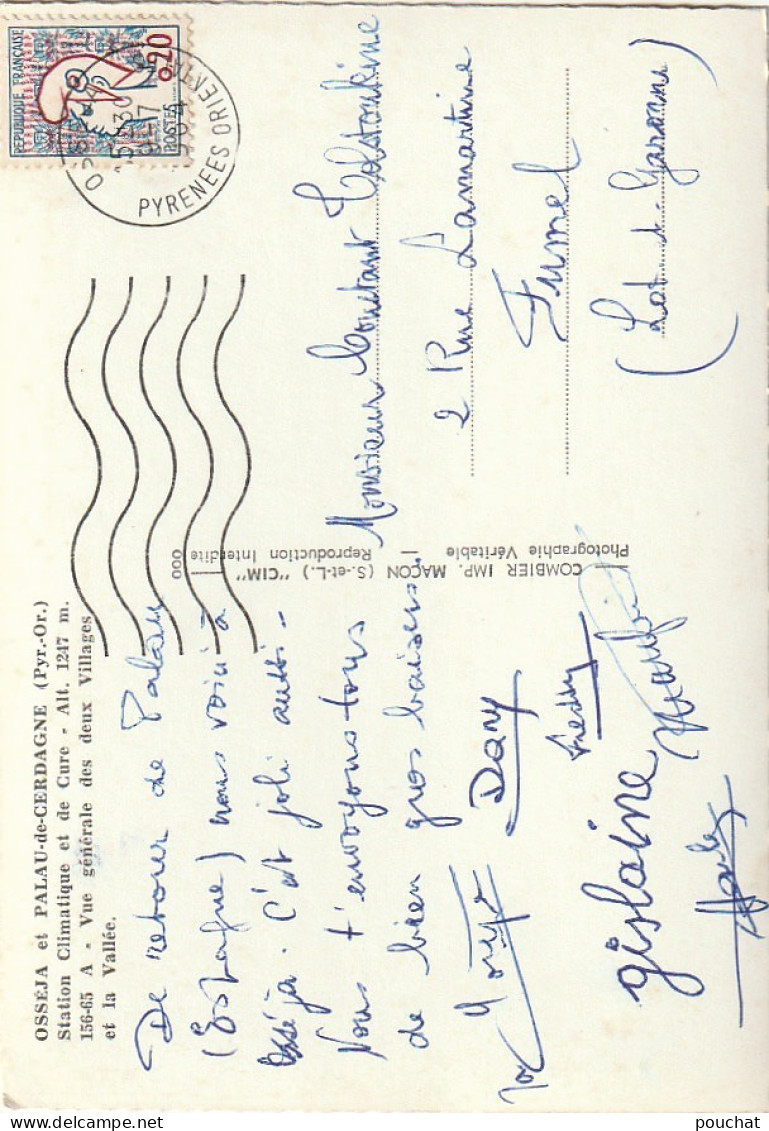 OSSÉJA et PALAU-de-CERDAGNE (Pyr.-Or.)
Station Climatique et de Cure - Alt. 1247 m.
156-65 A - Vue générale des deux Villages
et la Vallée.
De retour de Palau
(Espagne) nous voici à
Osséja. C'est joli aussi -
Nous t'envoyons tous
de bien gros baisers.
Dany
gislaine
COMBIER IMP. MACON (S.-et-L.) "CIM"
Photographie Véritable — Reproduction Interdite
000
REPUBLIQUE FRANÇAISE
0,20
POSTES
PYRENEES ORIENT
Monsieur Constant
2 Rue Lamartine
Fumel
(Lot-et-Garonne)
pouchat